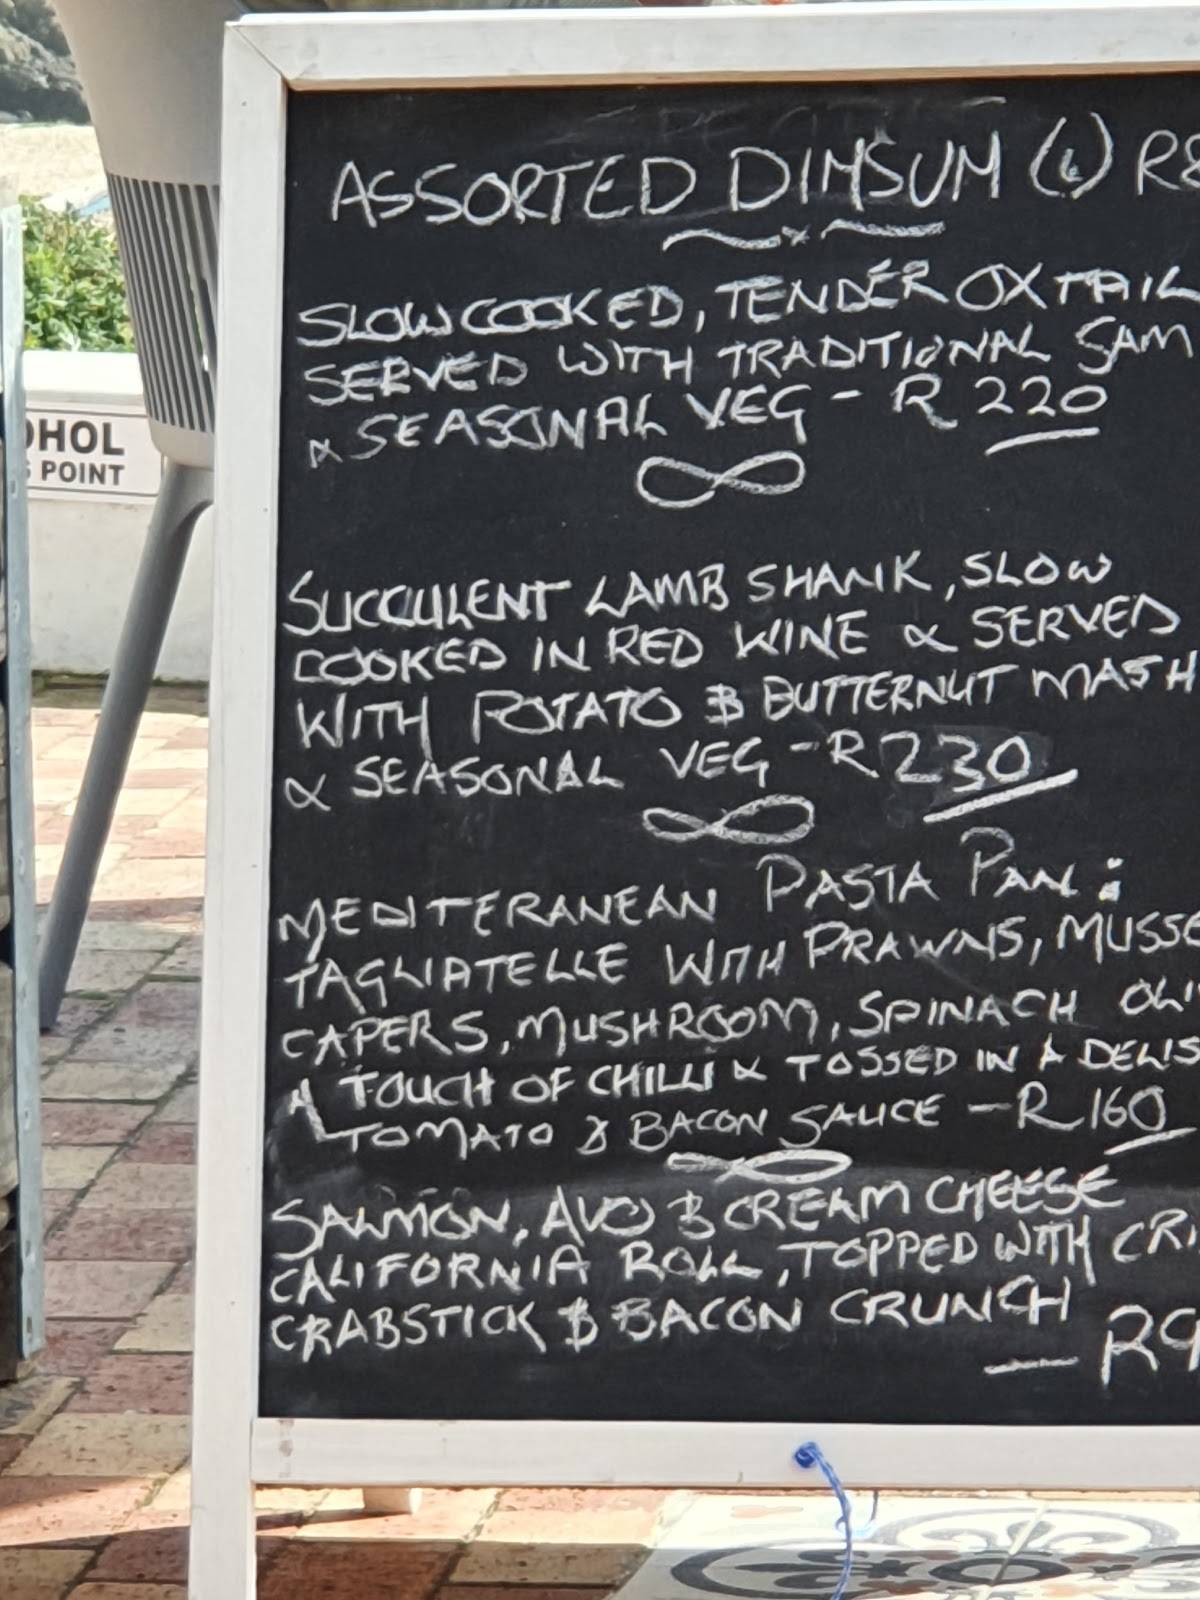 ASSORTED DIMSUM (6) R8
SLOWCOOKED, TENDER OXTAIL
SERVED WITH TRADITIONAL SAM
& SEASONAL VEG - R220
SUCCULENT LAMB SHANK, SLOW
COOKED IN RED WINE & SERVED
WITH POTATO & BUTTERNUT MASH
& SEASONAL VEG - R230
MEDITERANEAN PASTA PAN:
TAGLIATELLE WITH PRAWNS, MUSSE
CAPERS, MUSHROOM, SPINACH OLI
A TOUCH OF CHILLI & TOSSED IN A DELIS
TOMATO & BACON SAUCE - R160
SALMON, AVO & CREAM CHEESE
CALIFORNIA ROLL, TOPPED WITH CRI
CRABSTICK & BACON CRUNCH
- R9
OHOL
S POINT